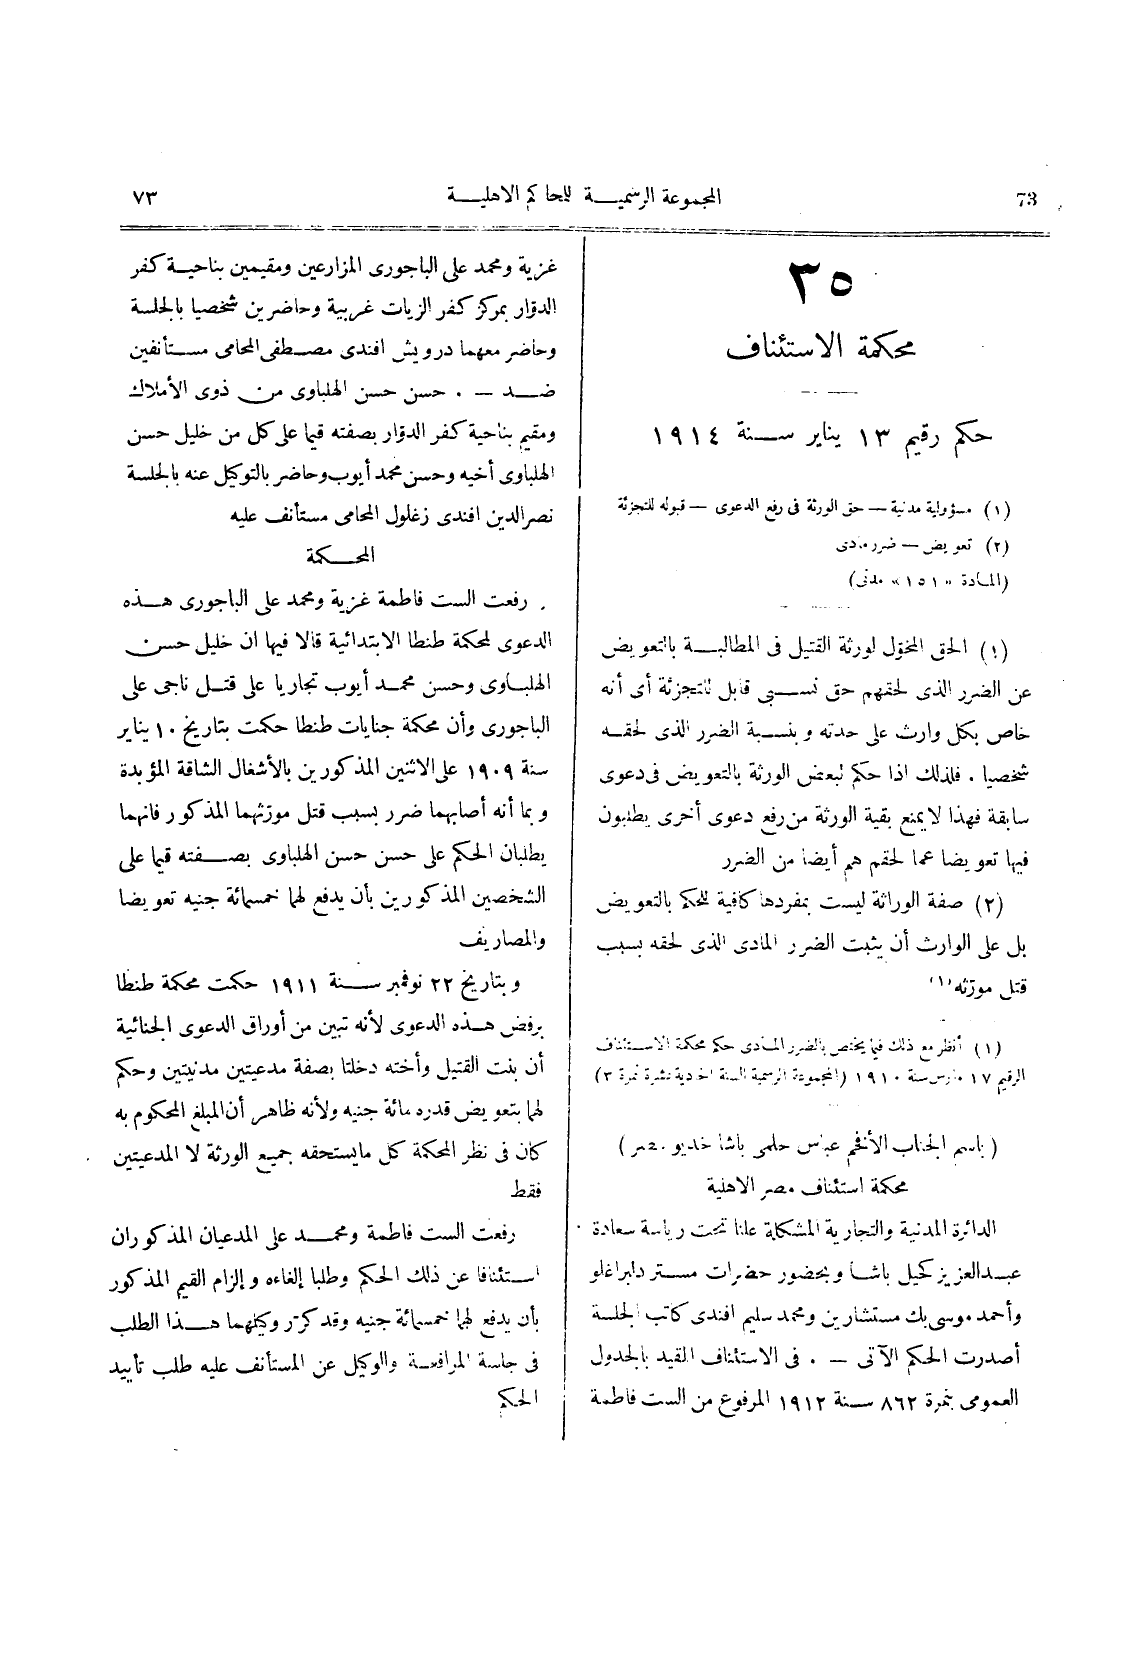 73
المجموعة الرسمية للمحاكم الاهلية
٧٣
٣٥
محكمة الاستئناف
حكم رقيم ١٣ يناير سنة ١٩١٤
(١) مسؤولية مدنية — حق الورثة فى رفع الدعوى — قبوله للتجزئة
(٢) تعويض — ضرر مادى
(المادة «١٥١» مدنى)
(١) الحق المخوّل لورثة القتيل فى المطالبة بالتعويض
عن الضرر الذى لحقهم حق نسبى قابل للتجزئة أى أنه
خاص بكل وارث على حدته وبنسبة الضرر الذى لحقه
شخصيا . فلذلك اذا حكم لبعض الورثة بالتعويض فى دعوى
سابقة فهذا لا يمنع بقية الورثة من رفع دعوى أخرى يطلبون
فيها تعويضا عما لحقهم هم أيضا من الضرر
(٢) صفة الوراثة ليست بمفردها كافية للحكم بالتعويض
بل على الوارث أن يثبت الضرر المادى الذى لحقه بسبب
قتل مورّثه (١)
(١) أنظر مع ذلك فيما يختص بالضرر المادى حكم محكمة الاستئناف
الرقيم ١٧ مارس سنة ١٩١٠ (المجموعة الرسمية السنة الحادية عشرة نمرة ٣)
(باسم الجناب الأفخم عباس حلمى باشا خديو مصر)
محكمة استئناف مصر الاهلية
الدائرة المدنية والتجارية المشكلة علنا تحت رياسة سعادة
عبد العزيز كحيل باشا وبحضور حضرات مستر دلبراغلو
وأحمد موسى بك مستشارين ومحمد سليم افندى كاتب الجلسة
أصدرت الحكم الآتى — . فى الاستئناف المقيد بالجدول
العمومى بنمرة ٨٦٢ سنة ١٩١٢ المرفوع من الست فاطمة
غزية ومحمد على الباجورى المزارعين ومقيمين بناحية كفر
الدوّار بمركز كفر الزيات غربية وحاضرين شخصيا بالجلسة
وحاضر معهما درويش افندى مصطفى المحامى مستأنفين
ضد — . حسن حسن الهلباوى من ذوى الأملاك
ومقيم بناحية كفر الدوّار بصفته قيما على كل من خليل حسن
الهلباوى أخيه وحسن محمد أيوب وحاضر بالتوكيل عنه بالجلسة
نصر الدين افندى زغلول المحامى مستأنف عليه
المحكمة
رفعت الست فاطمة غزية ومحمد على الباجورى هذه
الدعوى لمحكمة طنطا الابتدائية قالا فيها ان خليل حسن
الهلباوى وحسن محمد أيوب تجاريا على قتل ناجى على
الباجورى وأن محكمة جنايات طنطا حكمت بتاريخ ١٠ يناير
سنة ١٩٠٩ على الاثنين المذكورين بالأشغال الشاقة المؤبدة
وبما أنه أصابهما ضرر بسبب قتل مورّثهما المذكور فانهما
يطلبان الحكم على حسن حسن الهلباوى بصفته قيما على
الشخصين المذكورين بأن يدفع لهما خمسمائة جنيه تعويضا
والمصاريف
وبتاريخ ٢٢ نوفمبر سنة ١٩١١ حكمت محكمة طنطا
برفض هذه الدعوى لأنه تبين من أوراق الدعوى الجنائية
أن بنت القتيل وأخته دخلتا بصفة مدعيتين مدنيتين وحكم
لهما بتعويض قدره مائة جنيه ولأنه ظاهر أن المبلغ المحكوم به
كان فى نظر المحكمة كل ما يستحقه جميع الورثة لا المدعيتين
فقط
رفعت الست فاطمة ومحمد على المدعيان المذكوران
استئنافا عن ذلك الحكم وطلبا إلغاءه وإلزام القيم المذكور
بأن يدفع لهما خمسمائة جنيه وقد كرّر وكيلهما هذا الطلب
فى جلسة المرافعة والوكيل عن المستأنف عليه طلب تأييد
الحكم